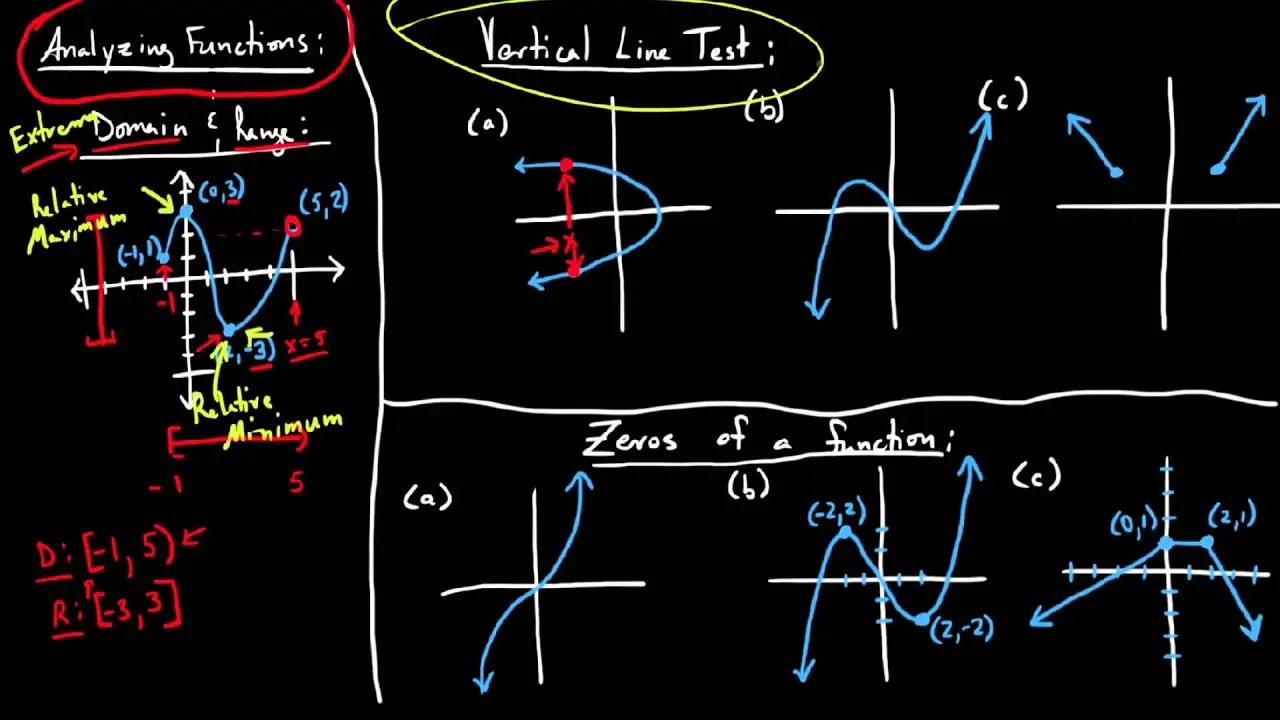 Analyzing Functions:
Extrema
Domain & Range:
Relative
Maximum
(0,3)
(5,2)
(-1,1)
-1
x=5
(2,-3)
Relative
Minimum
-1 5
D: [-1, 5)
R: [-3, 3]
Vertical Line Test:
(a)
(b)
(c)
x
Zeros of a function:
(a)
(b)
(-2,2)
(2,-2)
(c)
(0,1)
(2,1)